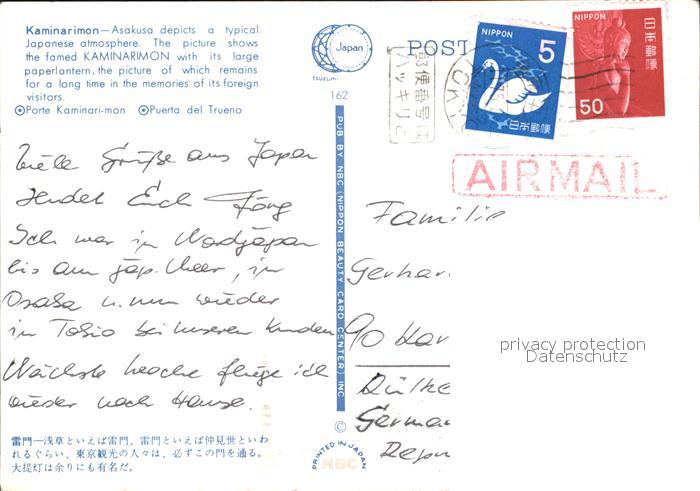 Kaminarimon—Asakusa depicts a typical
Japanese atmosphere. The picture shows
the famed KAMINARIMON with its large
paperlantern, the picture of which remains
for a long time in the memories of its foreign
visitors.
Porte Kaminari-mon Puerta del Trueno
Japan
tsuzumi
162
POST
郵便番号は
ハッキリと
NIPPON
5
日本郵便
NIPPON
50
日本郵便
AIRMAIL
Viele Grüße aus Japan
sendet Euch Jörg
Ich war in Nordjapan
bis am jap. Meer, in
Osaka u. nun wieder
in Tokio bei unseren Kunden
Nächste Woche fliege ich
wieder nach Hause.
PUB BY NBC (NIPPON BEAUTY CARD CENTER) INC
©
PRINTED IN JAPAN
NBC
Familie
Gerhar
90 Kar
German
Repu
privacy protection
Datenschutz
雷門—浅草といえば雷門、雷門といえば仲見世といわ
れるぐらい、東京観光の人々は、必ずこの門を通る。
大提灯は余りにも有名だ。